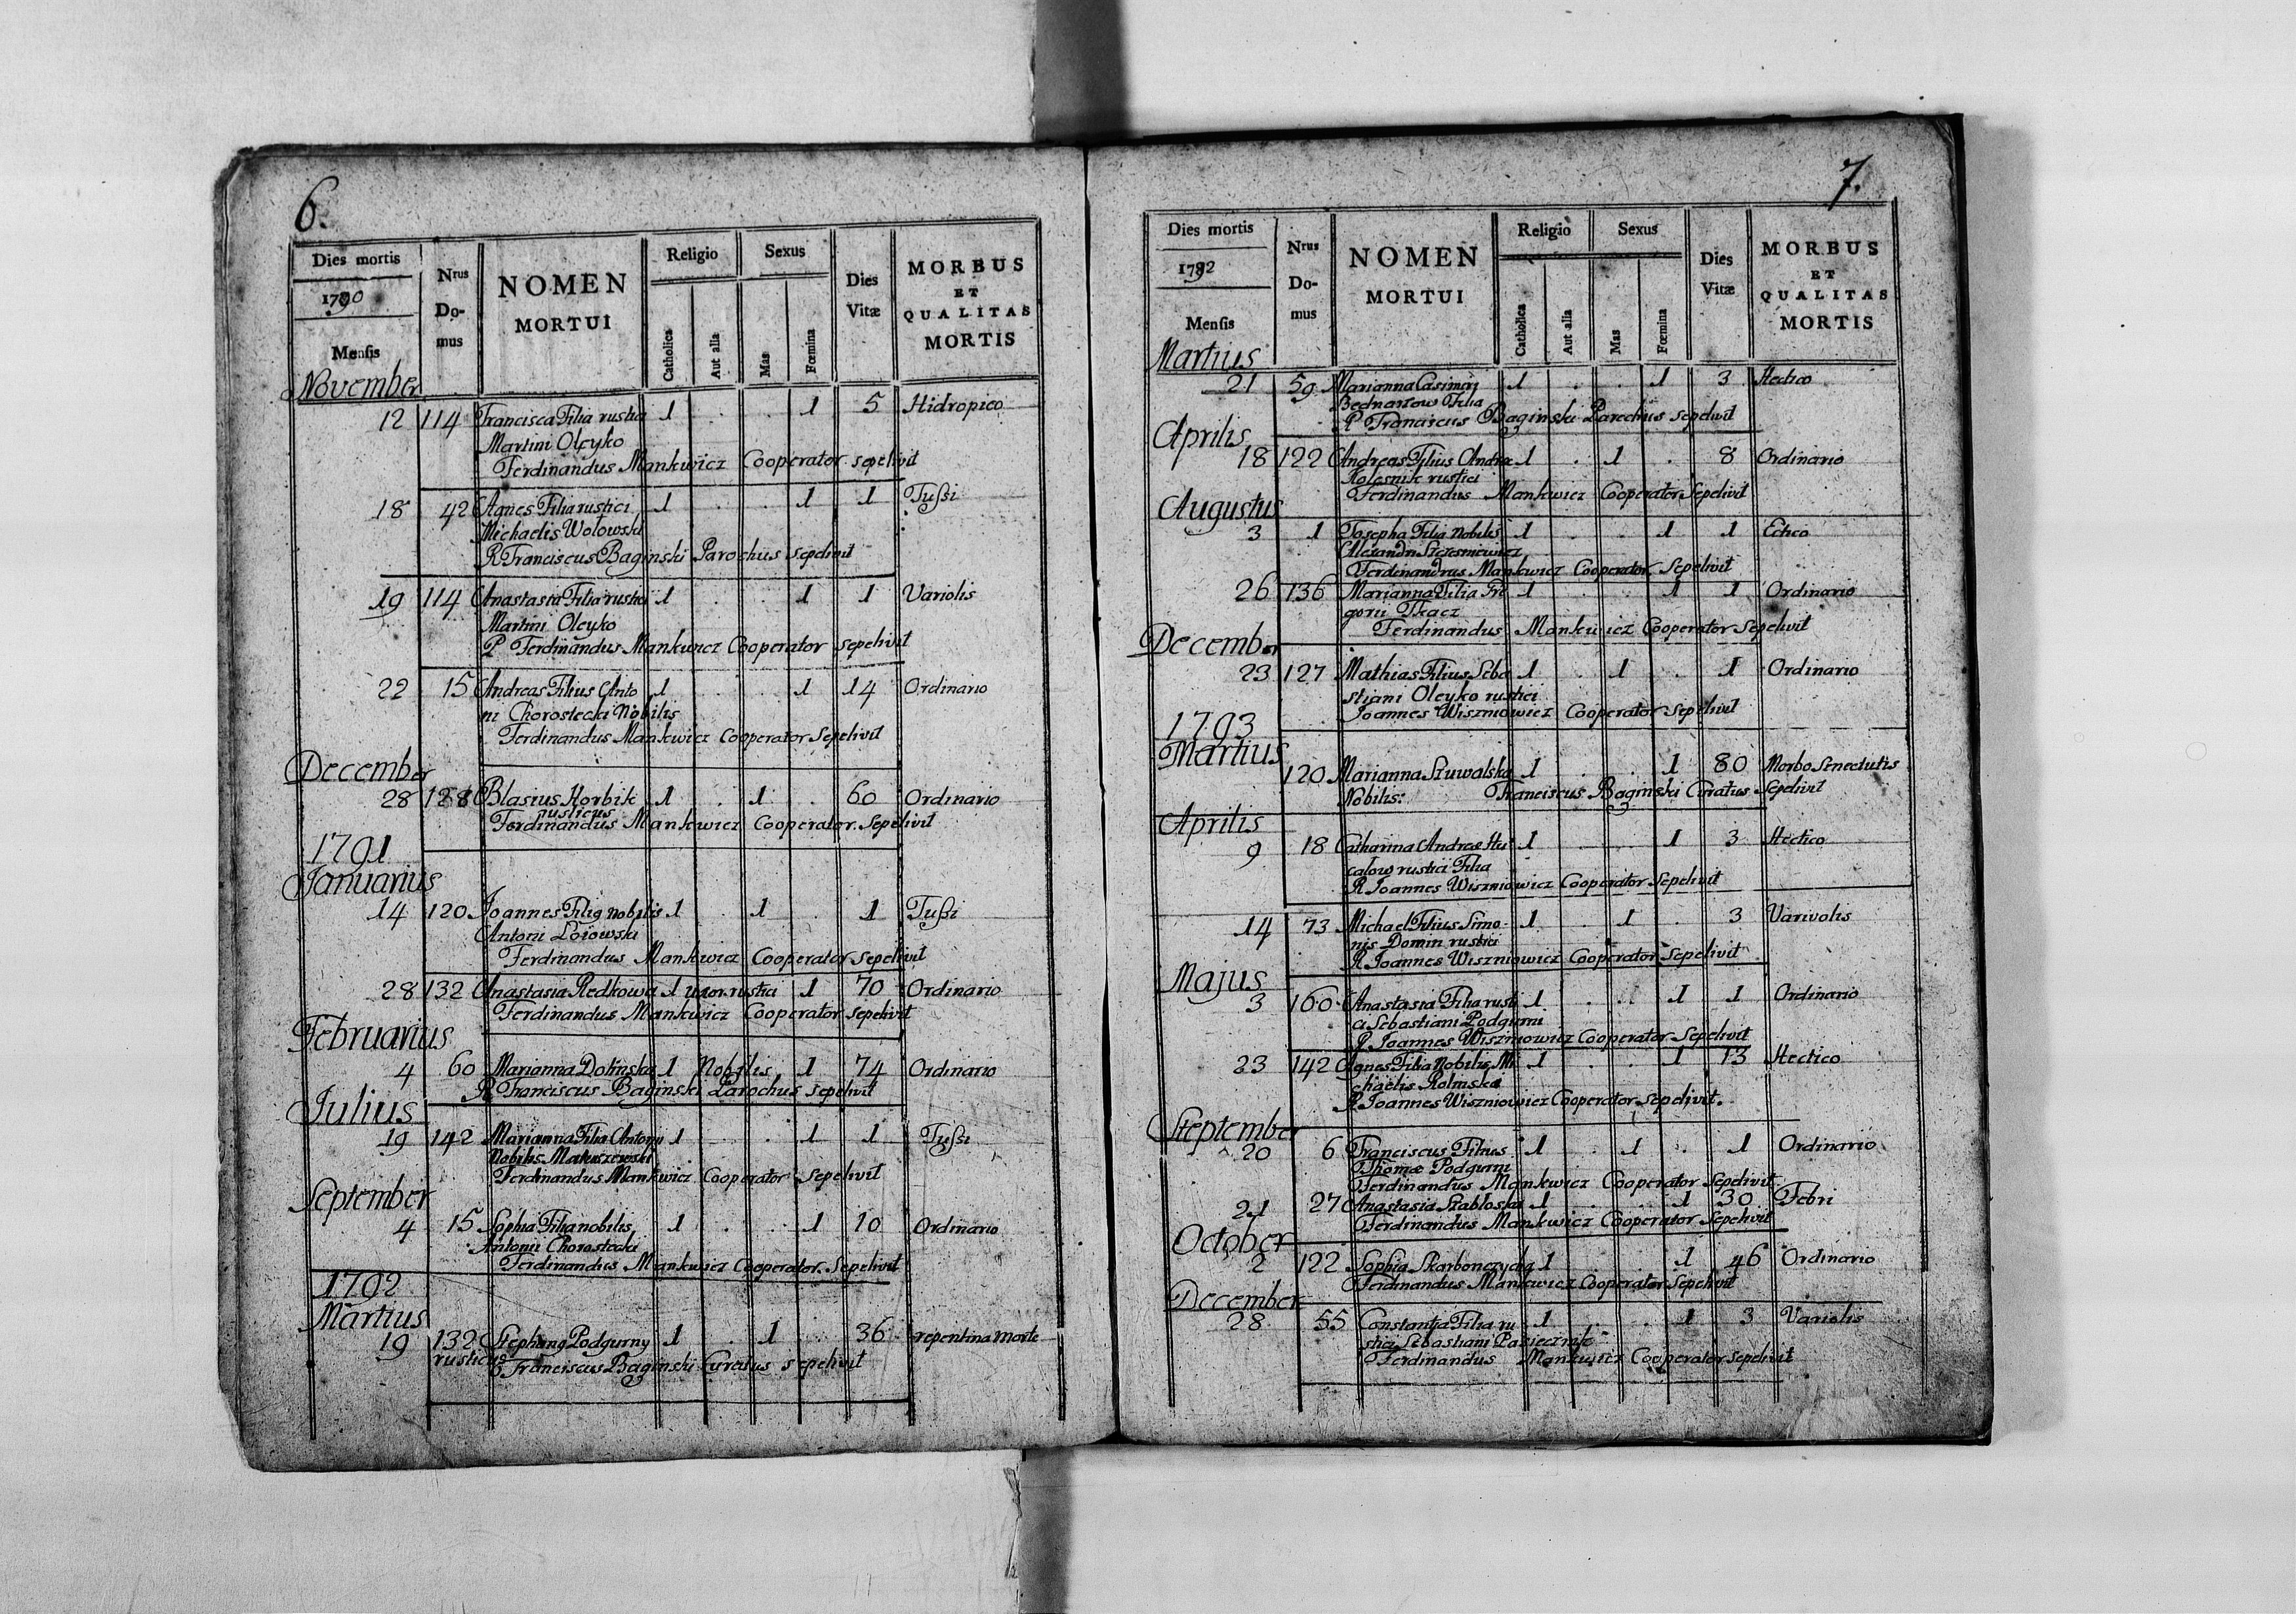 6.
Dies mortis
1790
Mensis
Nrus Domus
NOMEN MORTUI
Religio
Catholica
Aut alia
Sexus
Mas
Fœmina
Dies Vitæ
MORBUS ET QUALITAS MORTIS
November
12 114 Francisca Filia rustici 1 . . 1 5 Hidropico
Martini Oleyko
Ferdinandus Mankwicz Cooperator sepelivit
18 42 Agnes Filia rustici 1 . . 1 1 Tußi
Michaelis Wołowski
R Franciscus Baginski Parochus sepelivit
19 114 Anastasia Filia rustici 1 . . 1 1 Variolis
Martini Oleyko
P Ferdinandus Mankwicz Cooperator sepelivit
22 15 Andreas Filius Anto 1 . . 1 14 Ordinario
ni Chorostecki Nobilis
Ferdinandus Mankwicz Cooperator Sepelivit
December
28 128 Blasius Horbik 1 . 1 . 60 Ordinario
rusticus
Ferdinandus Mankwicz Cooperator Sepelivit
1791
Januarius
14 120 Joannes Filig nobilis 1 . 1 . 1 Tußi
Antoni
Ferdinandus Mankwicz Cooperator sepelivit
28 132 Anastasia Redkowa 1 uxor rustici 1 70 Ordinario
Ferdinandus Mankwicz Cooperator sepelivit
Februarius
4 60 Marianna Dolinska 1 Nobilis 1 74 Ordinario
R Franciscus Baginski Parochus sepelivit
Julius
19 142 Marianna Filia Antonii 1 . . 1 1 Tußi
Nobilis Mateuszewski
Ferdinandus Mankwicz Cooperator sepelivit
September
4 15 Sophia Filia nobilis 1 . . 1 10 Ordinario
Antonii Chorostecki
Ferdinandus Mankwicz Cooperator Sepelivit
1792
Martius
19 132 Stephang Podgurny 1 . 1 . 36 repentina morte
rusticus Franciscus Baginski Curatus sepelivit
7.
Dies mortis
1792
Mensis
Nrus Domus
NOMEN MORTUI
Religio
Catholica
Aut alia
Sexus
Mas
Fœmina
Dies Vitæ
MORBUS ET QUALITAS MORTIS
Martius
21 59 Marianna Casimiri 1 . . 1 3 Hectico
Bednarow Filia
R Franciscus Baginski Parochus sepelivit
Aprilis
18 122 Andreas Filius Andrea 1 . 1 . 8 Ordinario
Kolesnik rustici
Ferdinandus Mankwicz Cooperator Sepelivit
Augustus
3 1 Josepha Filia Nobilis 1 . . 1 1 Ectico
Alexandri
Ferdinandus Mankwicz Cooperator Sepelivit
26 136 Marianna Filia Gri 1 . . 1 1 Ordinario
gorii Tkacz
Ferdinandus Mankwicz Cooperator Sepelivit
December
23 127 Mathias Filius Seba 1 . 1 . 1 Ordinario
stiani Oleyko rustici
Joannes Wiszniowicz Cooperator Sepelivit
1793
Martius
120 Marianna Szuwalska 1 . . 1 80 Morbo Senectutis
Nobilis: Franciscus Baginski Curatus Sepelivit
Aprilis
9 18 Catharina Andreæ 1 . . 1 3 Hectico
calow rustici Filia
R Joannes Wiszniowicz Cooperator Sepelivit
14 73 Michael Filius Simo 1 . 1 . 3 Varivolis
nis Domin rustici
R Joannes Wiszniowicz Cooperator Sepelivit
Majus
3 160 Anastasia Filia rusti 1 . . 1 1 Ordinario
ci Sebastiani Podgurni
R Joannes Wiszniowicz Cooperator Sepelivit
23 142 Agnes Filia Nobilis Mi 1 . . 1 13 Hectico
chaelis Rolinska
R Joannes Wiszniowicz Cooperator sepelivit.
September
20 6 Franciscus Filius 1 . 1 . 1 Ordinario
Thomæ Podgurni
Ferdinandus Mankwicz Cooperator Sepelivit
21 27 Anastasia 1 . . 1 30 Febri
Ferdinandus Mankwicz Cooperator Sepelivit
October
2 122 Sophia 1 1 46 Ordinario
Ferdinandus Mankwicz Cooperator Sepelivit
December
28 55 Constantia Filia ru 1 . . 1 3 Variolis
stici Sebastiani Pasiecznik
Ferdinandus Mankwicz Cooperator sepelivit